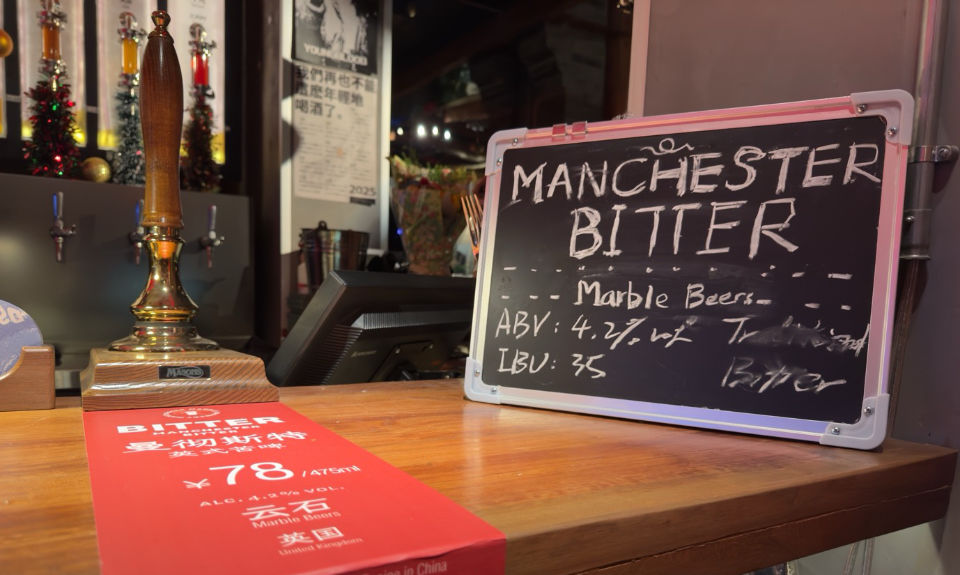 我們再也不能
這麽年輕地
喝酒了。
2025
MANCHESTER
BITTER
Marble Beers
ABV: 4.2% vol Traditional
IBU: 35 Bitter
MASONS
BITTER
MANCHESTER
BITTER
曼彻斯特
英式苦啤
¥78/475ml
ALC. 4.2% VOL.
云石
Marble Beers
英国
United Kingdom
in China